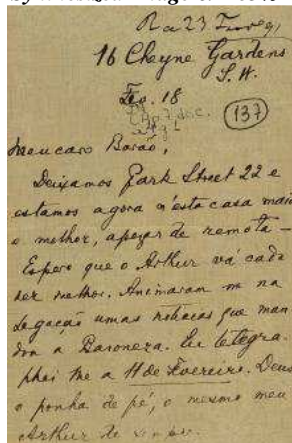 Ra 23
16 Cheyne Gardens
S. W.
Fev. 18
(137)
Meu caro Barão,
Deixamos Park Street 22 e
estamos agora n'esta casa maior
e melhor, apezar de remota –
Espero que o Arthur vá cada
vez melhor. Ancioso na
Legação umas noticias que man
dou a Baroneza. Eu telegra-
phei lhe a 11 de Fevereiro. Deus
o ponha de pé, o mesmo meu
Arthur de